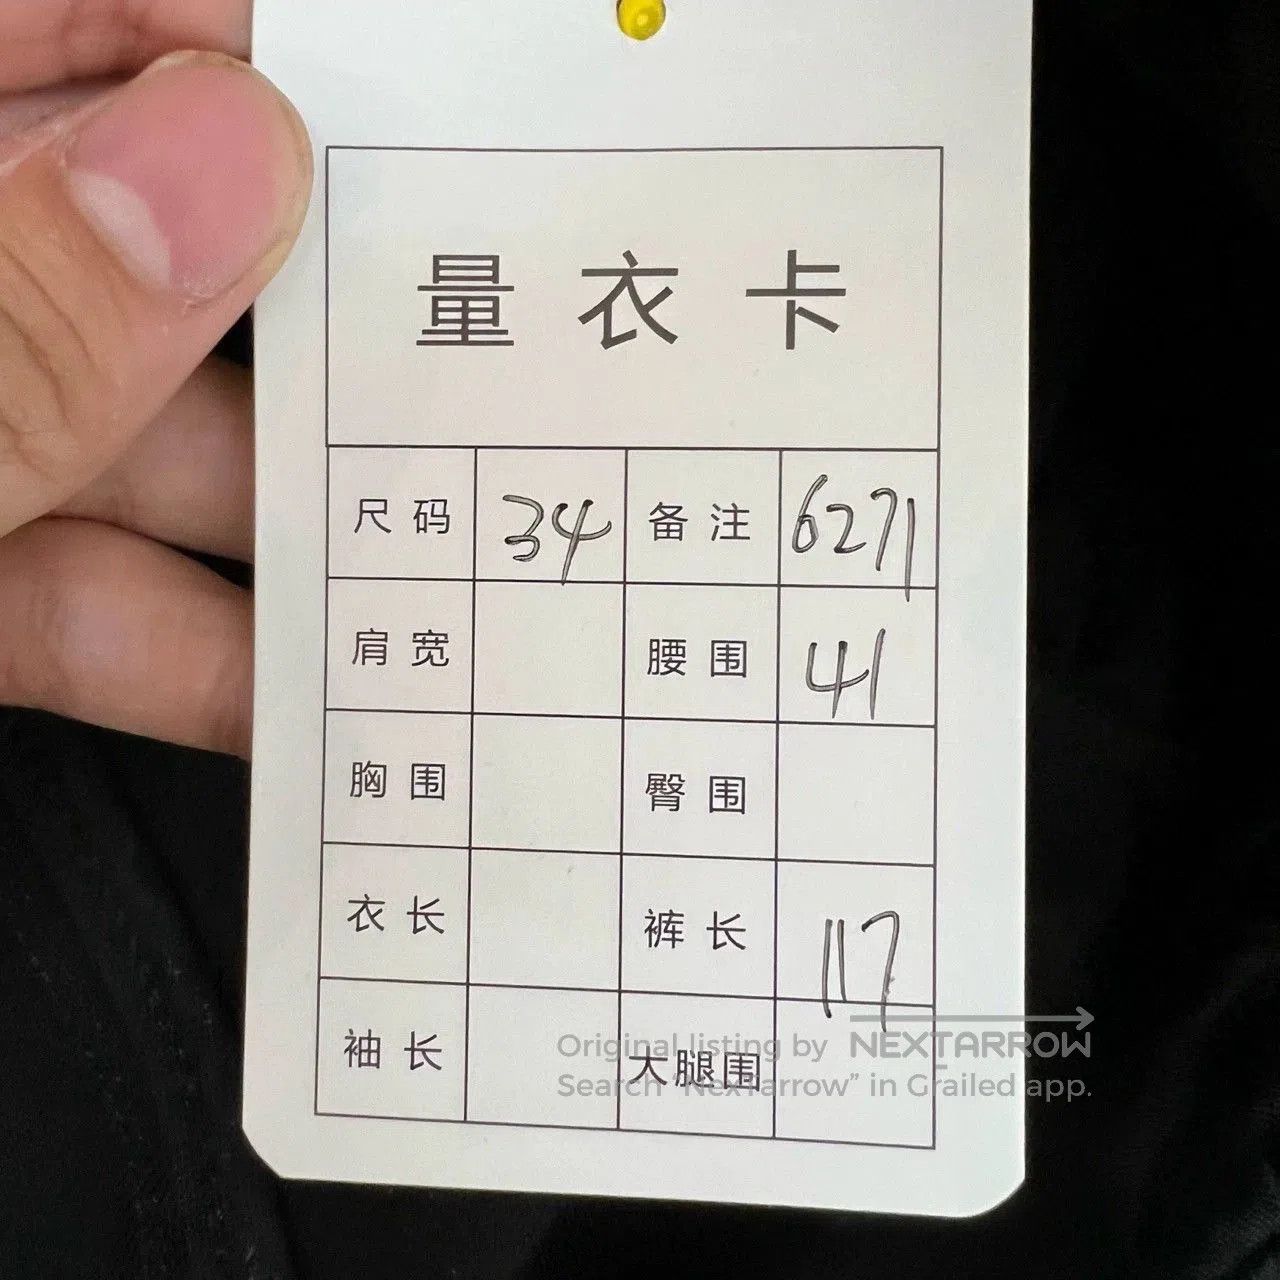 量衣卡
尺码 34 备注 6271
肩宽 腰围 41
胸围 臀围
衣长 裤长 117
袖长 大腿围
Original listing by NEXTARROW
Search "NexTarrow" in Grailed app.